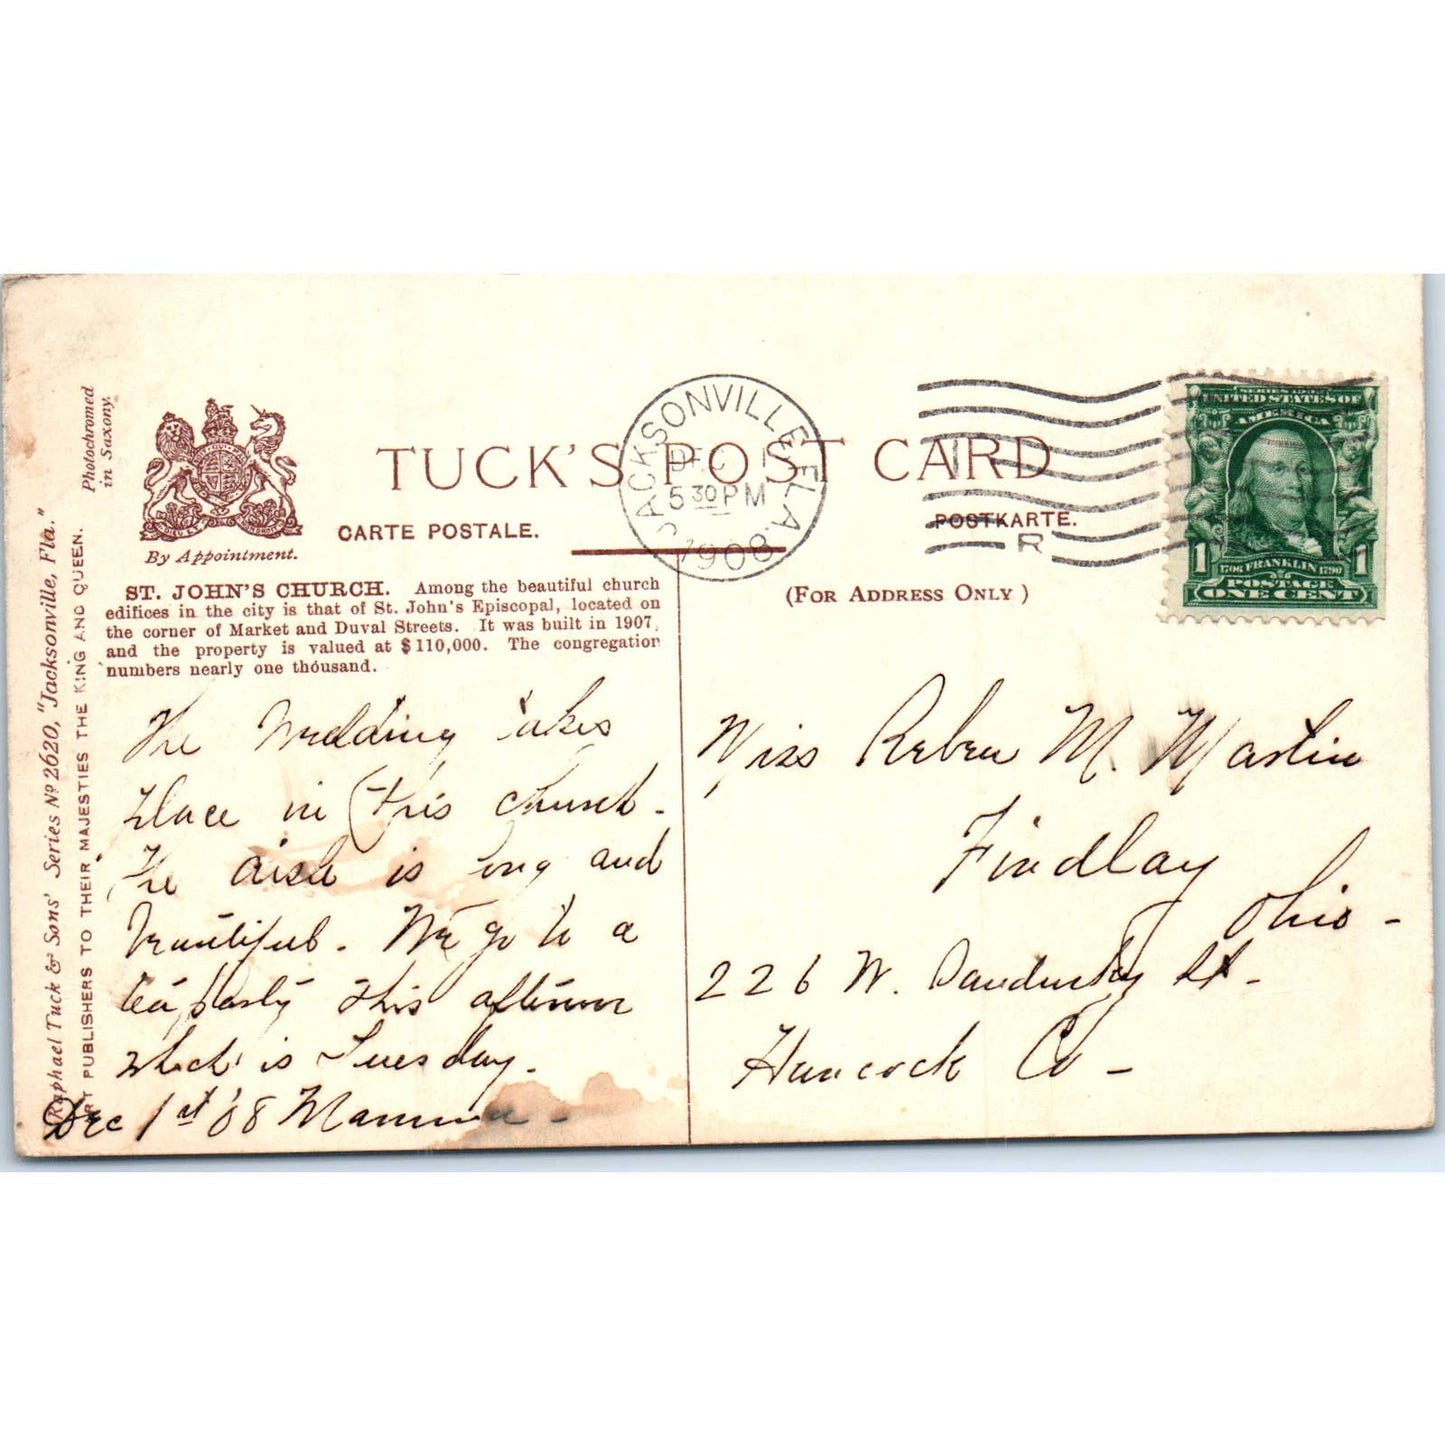 Photochromed
in Saxony.
Raphael Tuck & Sons' Series Nº 2620, "Jacksonville, Fla."
ART PUBLISHERS TO THEIR MAJESTIES THE KING AND QUEEN.
By Appointment.
TUCK'S POST CARD
CARTE POSTALE.
POSTKARTE.
(FOR ADDRESS ONLY)
JACKSONVILLE, FLA.
DEC 1
5 30 PM
1908
R
SERIES 1902
UNITED STATES OF
AMERICA
1706 FRANKLIN 1790
1 1
POSTAGE
ONE CENT
ST. JOHN'S CHURCH. Among the beautiful church
edifices in the city is that of St. John's Episcopal, located on
the corner of Market and Duval Streets. It was built in 1907,
and the property is valued at $110,000. The congregation
numbers nearly one thousand.
The Wedding takes
place in this church.
The aisle is long and
beautiful. We go to a
tea party this afternoon
which is Tuesday.
Dec 1st '08 Mamma
Miss Reben M. Martin
Findlay
Ohio
226 W. Sandusky St.
Hancock Co